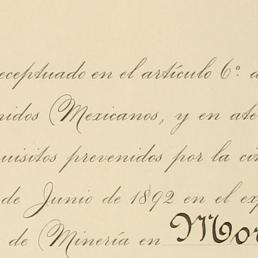 eceptuado en el artículo 6º. d
nidos Mexicanos, y en ate
quisitos prevenidos por la ci
de Junio de 1892 en el exp
de Minería en Mor